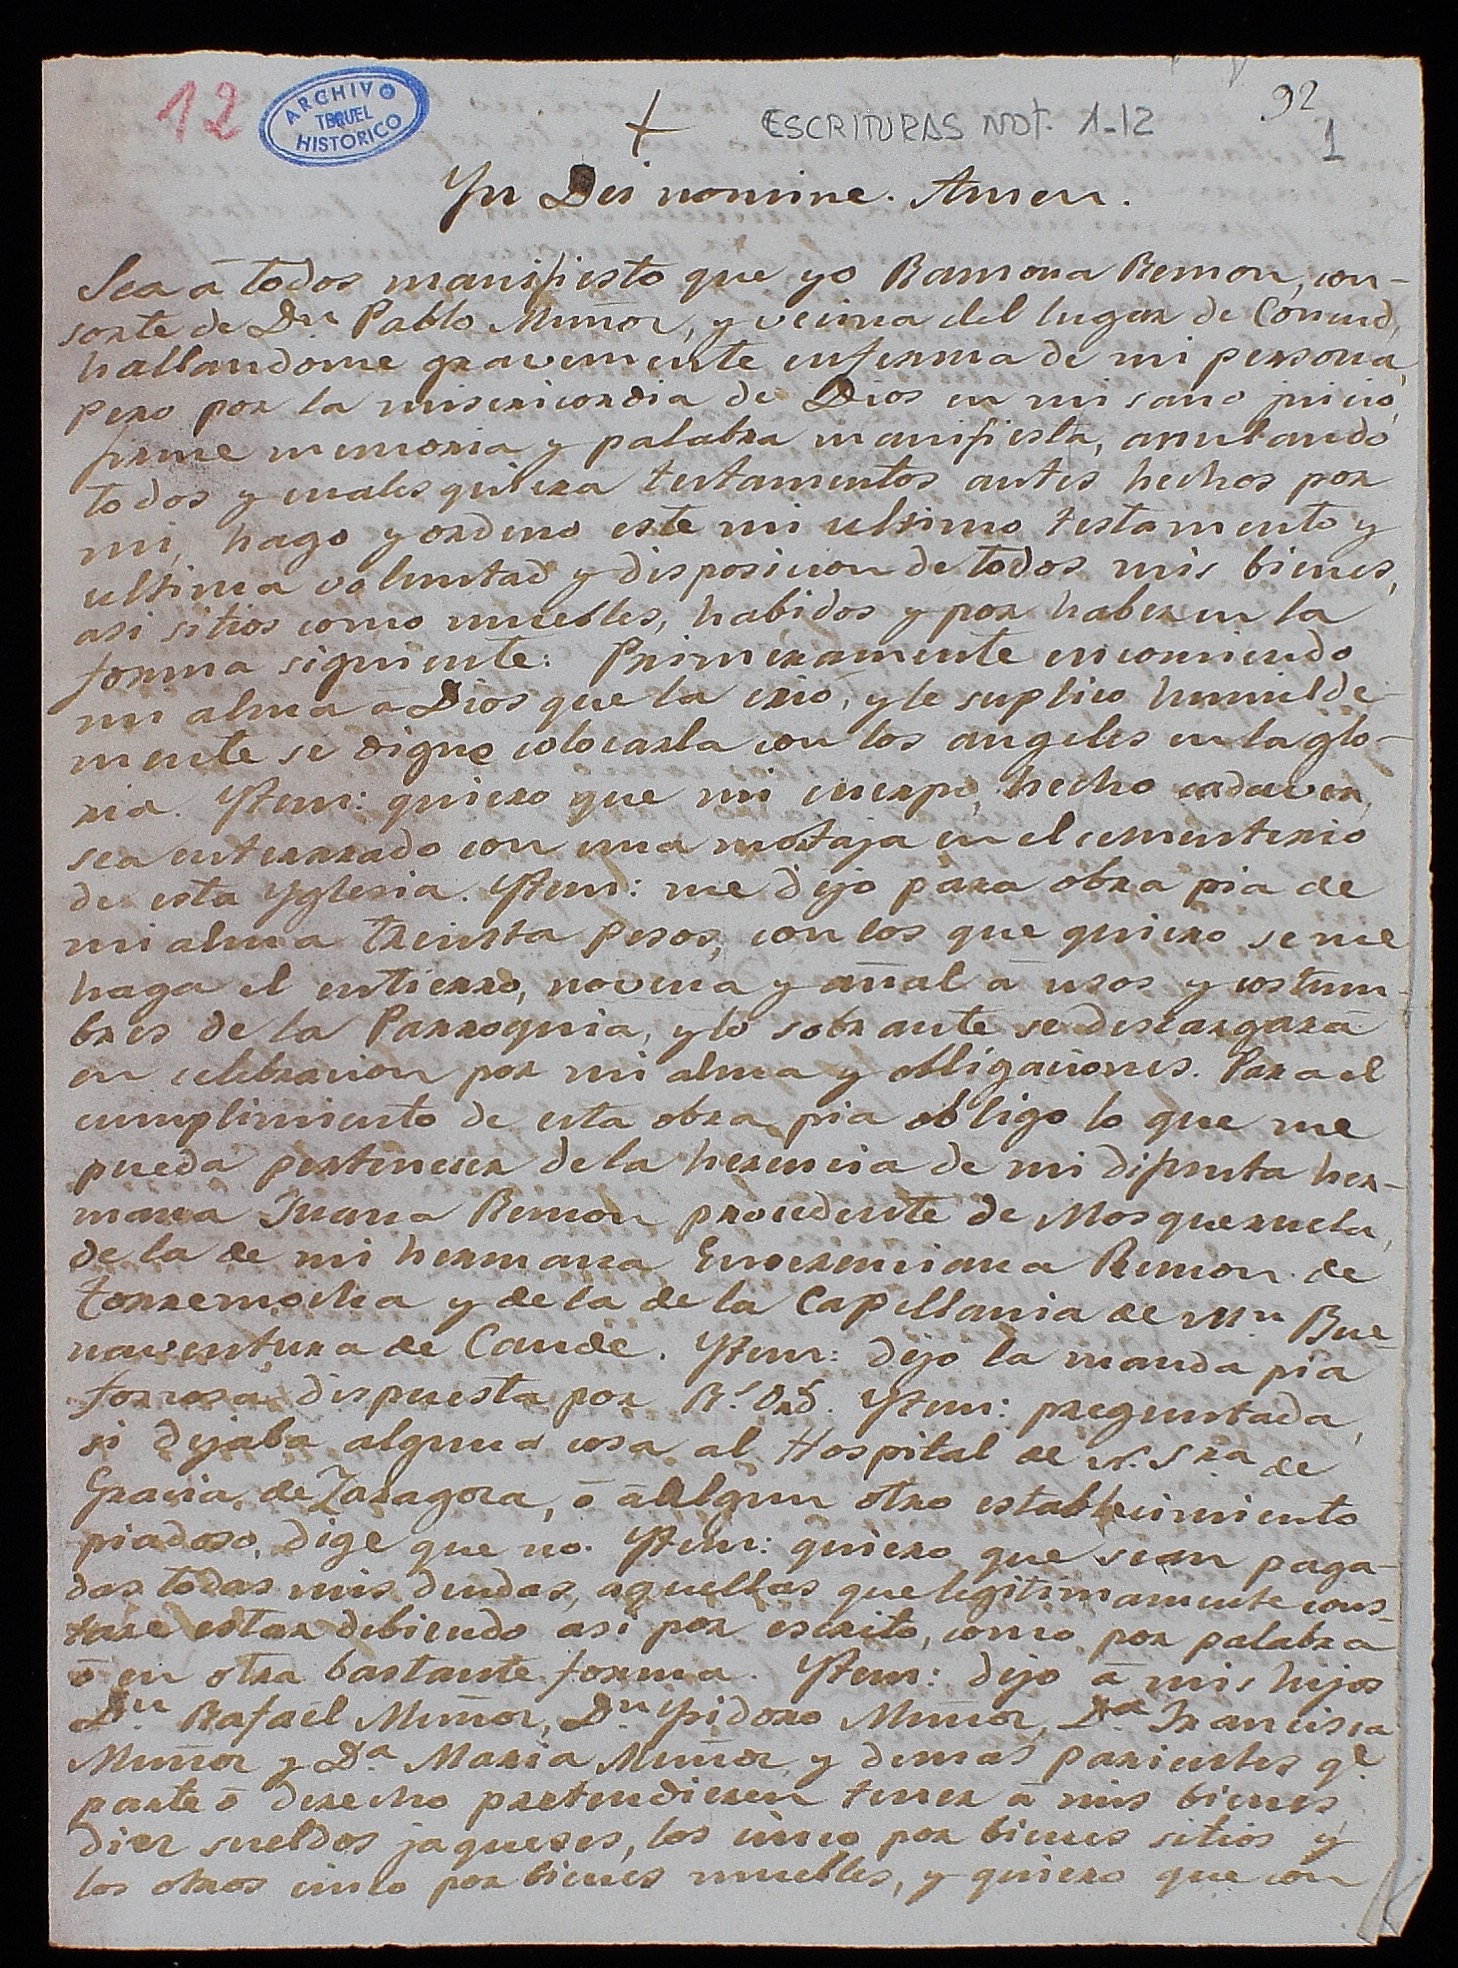 12
ARCHIVO
TERUEL
HISTORICO
+
ESCRITURAS NOT. 1-12
92
1
Yn Dei nomine. Amen.
Sea à todos manifiesto que yo Ramona Remon, con-
sorte de Dn Pablo Muñoz, y vecina del lugar de Concud,
hallandome gravemente enferma de mi persona,
pero por la misericordia de Dios en mi sano juicio,
firme memoria y palabra manifiesta, anulando
todos y cualesquiera testamentos antes hechos por
mi, hago y ordeno este mi ultimo testamento y
ultima voluntad y disposicion de todos mis bienes,
asi sitios como muebles, habidos y por haber en la
forma siguiente: Primeramente encomiendo
mi alma à Dios que la crió, y le suplico humilde-
mente se digne colocarla con los angeles en la glo-
ria. Ytem: quiero que mi cuerpo, hecho cadaver,
sea enterrado con una mortaja en el cementerio
de esta Yglesia. Ytem: me dejo para obra pia de
mi alma treinta pesos, con los que quiero se me
haga el entierro, novena y añal à usos y costum-
bres de la Parroquia, y lo sobrante se descargará
en celebracion por mi alma y obligaciones. Para el
cumplimiento de esta obra pia obligo lo que me
pueda pertenecer de la herencia de mi difunta her-
mana Juana Remon procedente de Mosqueruela,
de la de mi hermana Emerenciana Remon de
Torremocha y de la de la Capellania de Mn Bue
naventura de Caude. Ytem: dejo la manda pia
forzosa dispuesta por Rl. Ord. Ytem: preguntada,
si dejaba alguna cosa al Hospital de N. Sra de
Gracia, de Zaragoza, ó à algun otro establecimiento
piadoso, dige que no. Ytem: quiero que sean paga-
das todas mis deudas, aquellas que legitimamente cons-
tare estar debiendo asi por escrito, como por palabra
ó en otra bastante forma. Ytem: dejo à mis hijos
Dn. Rafael Muñoz, Dn Ysidoro Muñoz, Da Francisca
Muñoz y Da. Maria Muñoz y demas parientes qe
parte ó derecho pretendieren tener à mis bienes
diez sueldos jaqueses, los cinco por bienes sitios y
los otros cinco por bienes muebles, y quiero que con